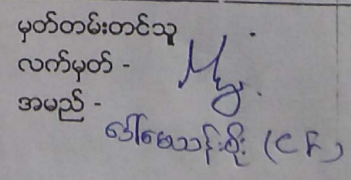 မှတ်တမ်းတင်သူ
လက်မှတ် -
အမည် -
ဒေါ်မေသန်းစိုး (CF)